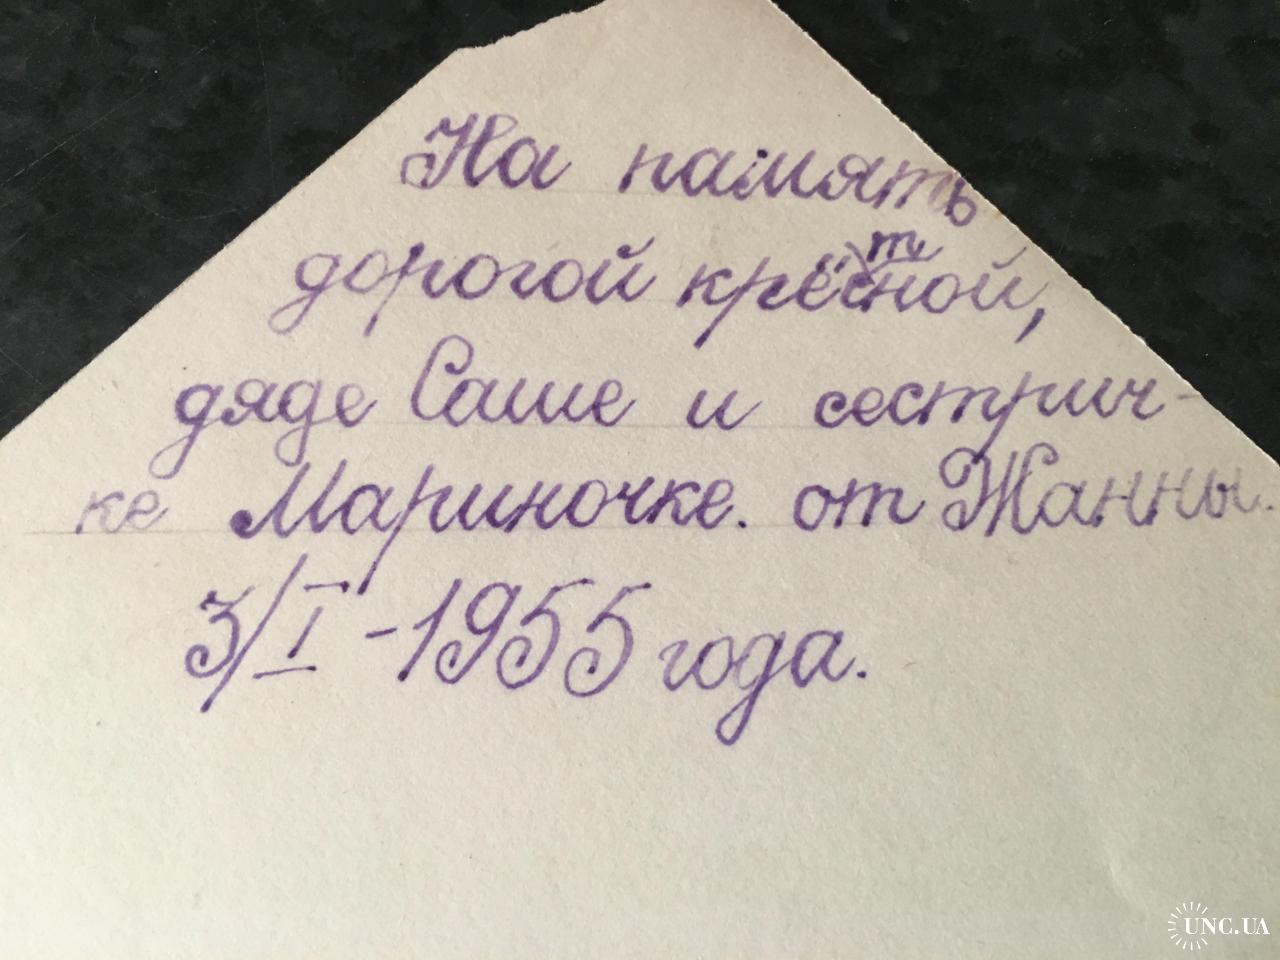 На память
дорогой крёстной,
дяде Саше и сестрич-
ке Мариночке. от Жанны.
3/I -1955 года.
UNC.UA